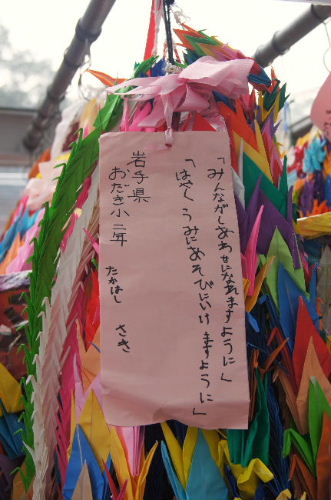 「みんながしあわせになれますように」
「はやくうみにあそびにいけますように」
岩手県
おだき小二年
たかはし さき